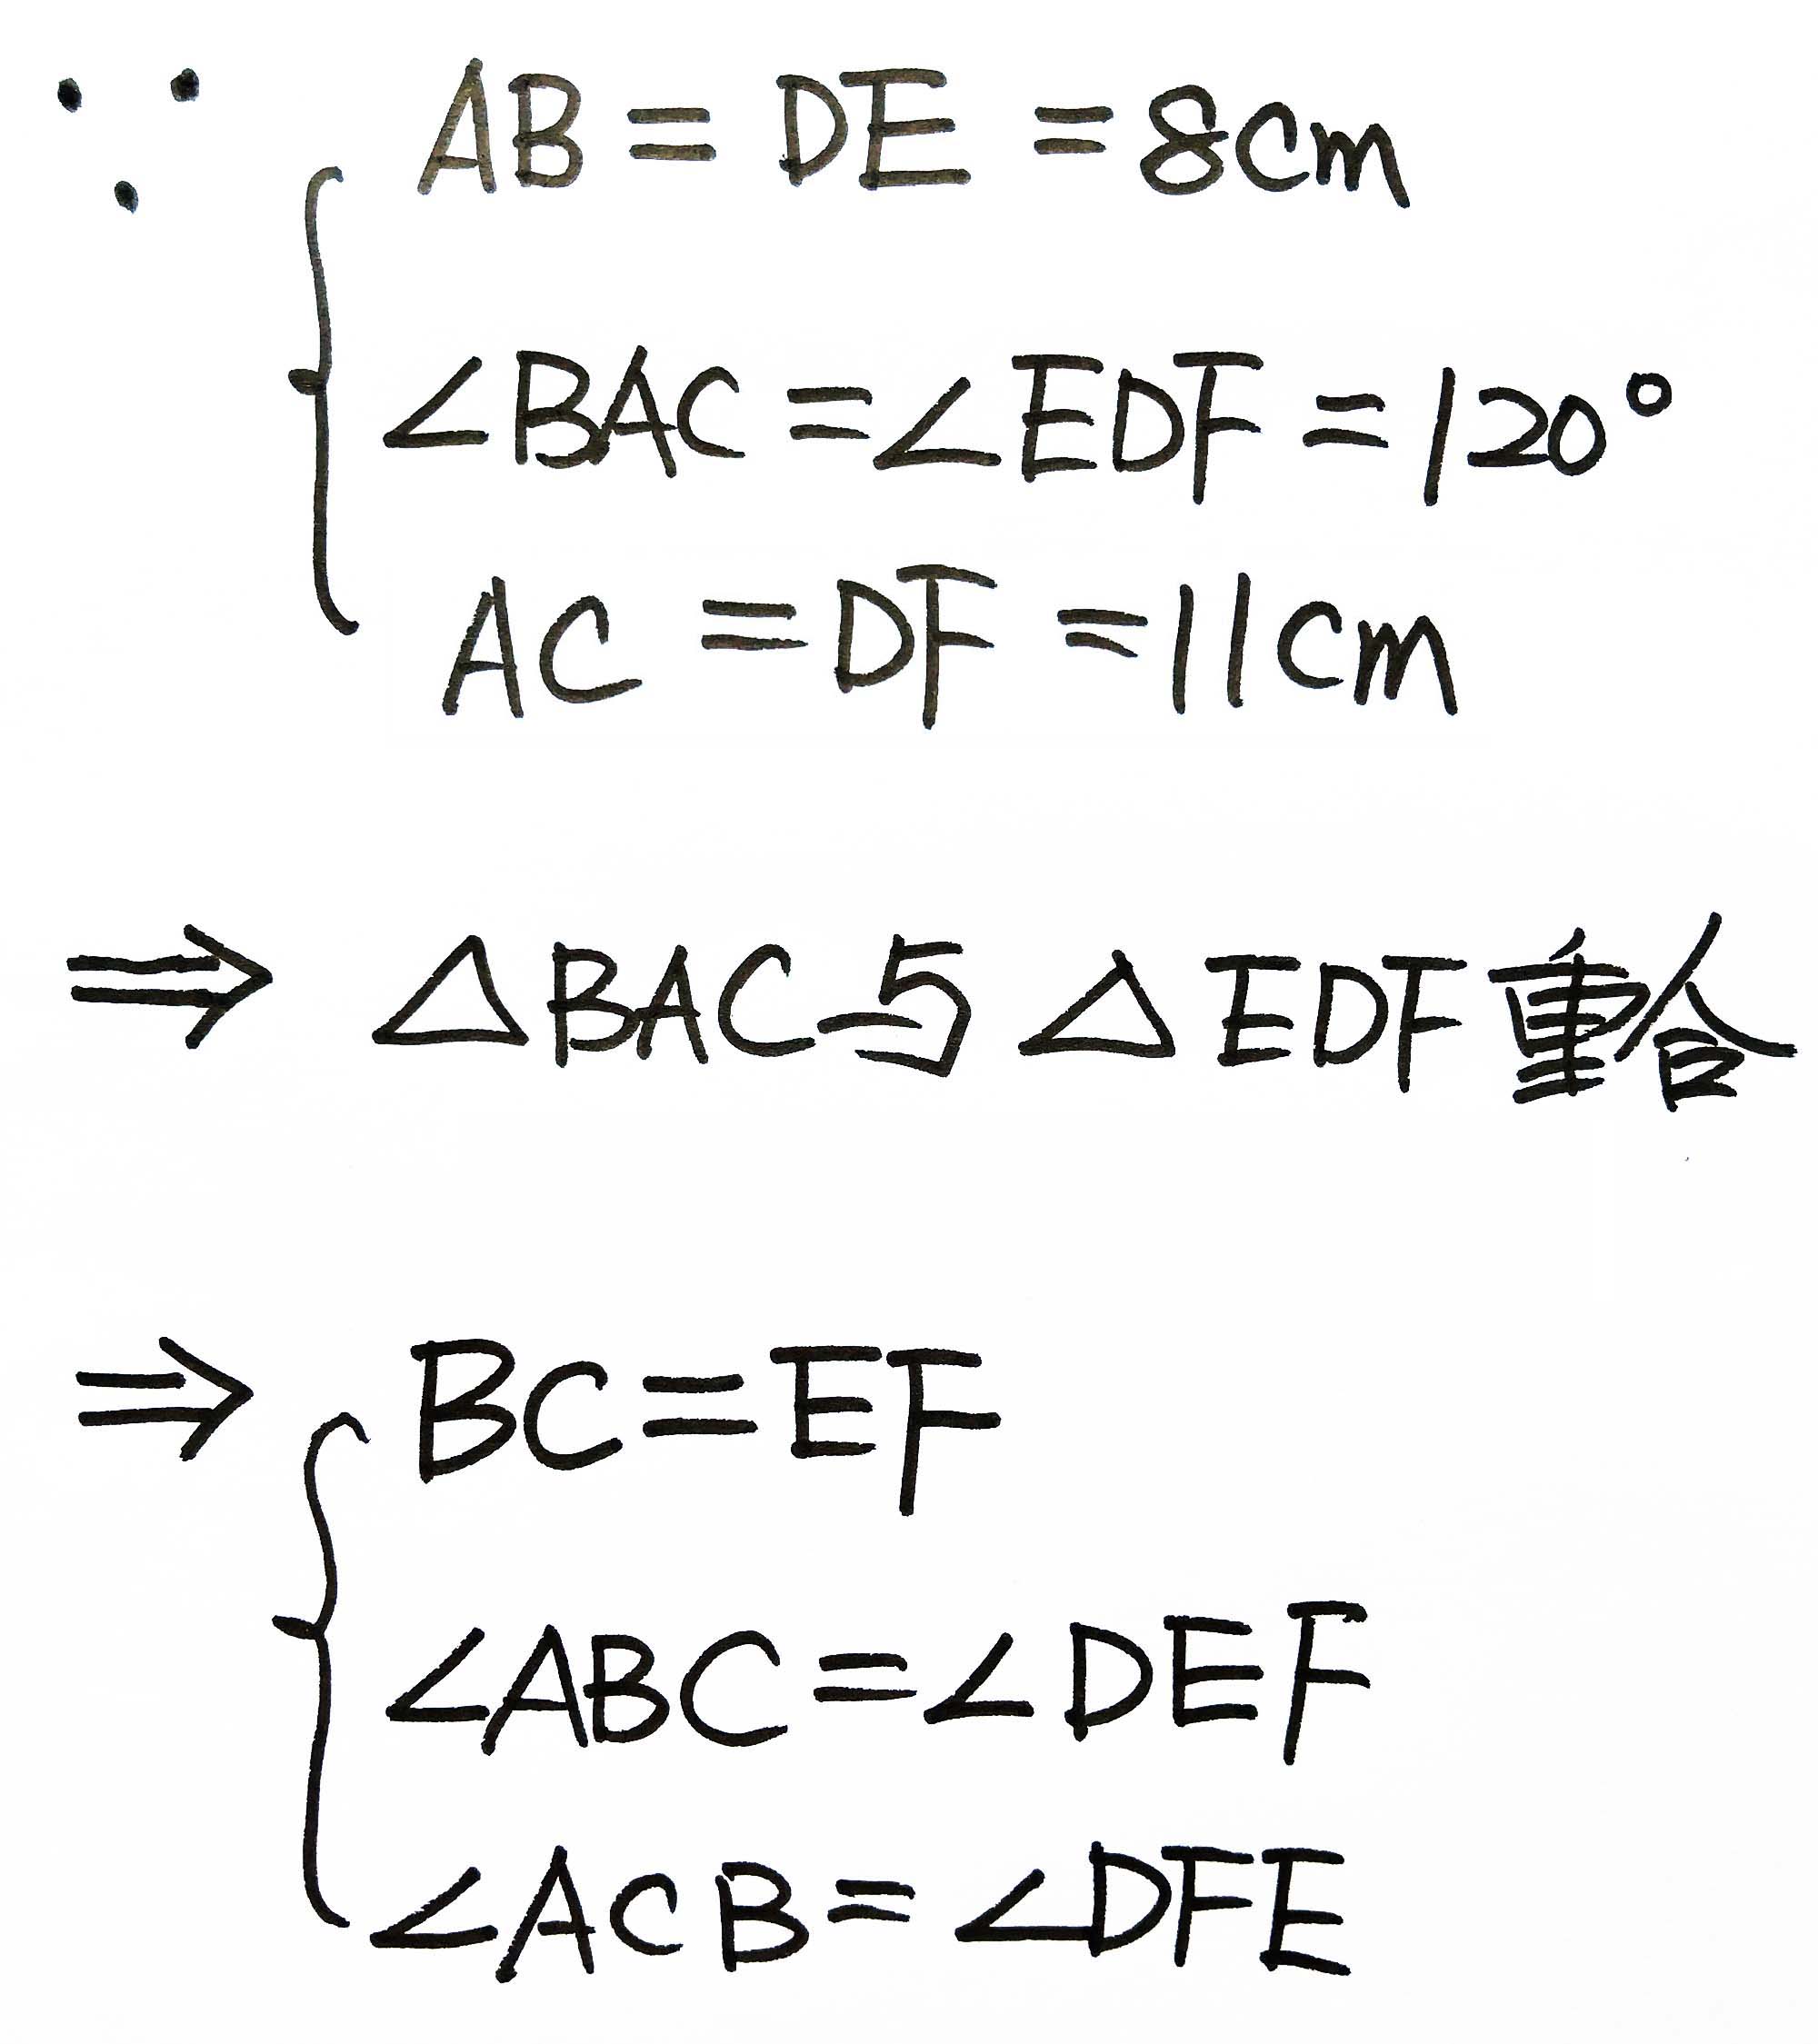 ∵ { AB = DE = 8cm
∠BAC = ∠EDF = 120°
AC = DF = 11cm
⇒ △BAC与△EDF重合
⇒ { BC = EF
∠ABC = ∠DEF
∠ACB = ∠DFE